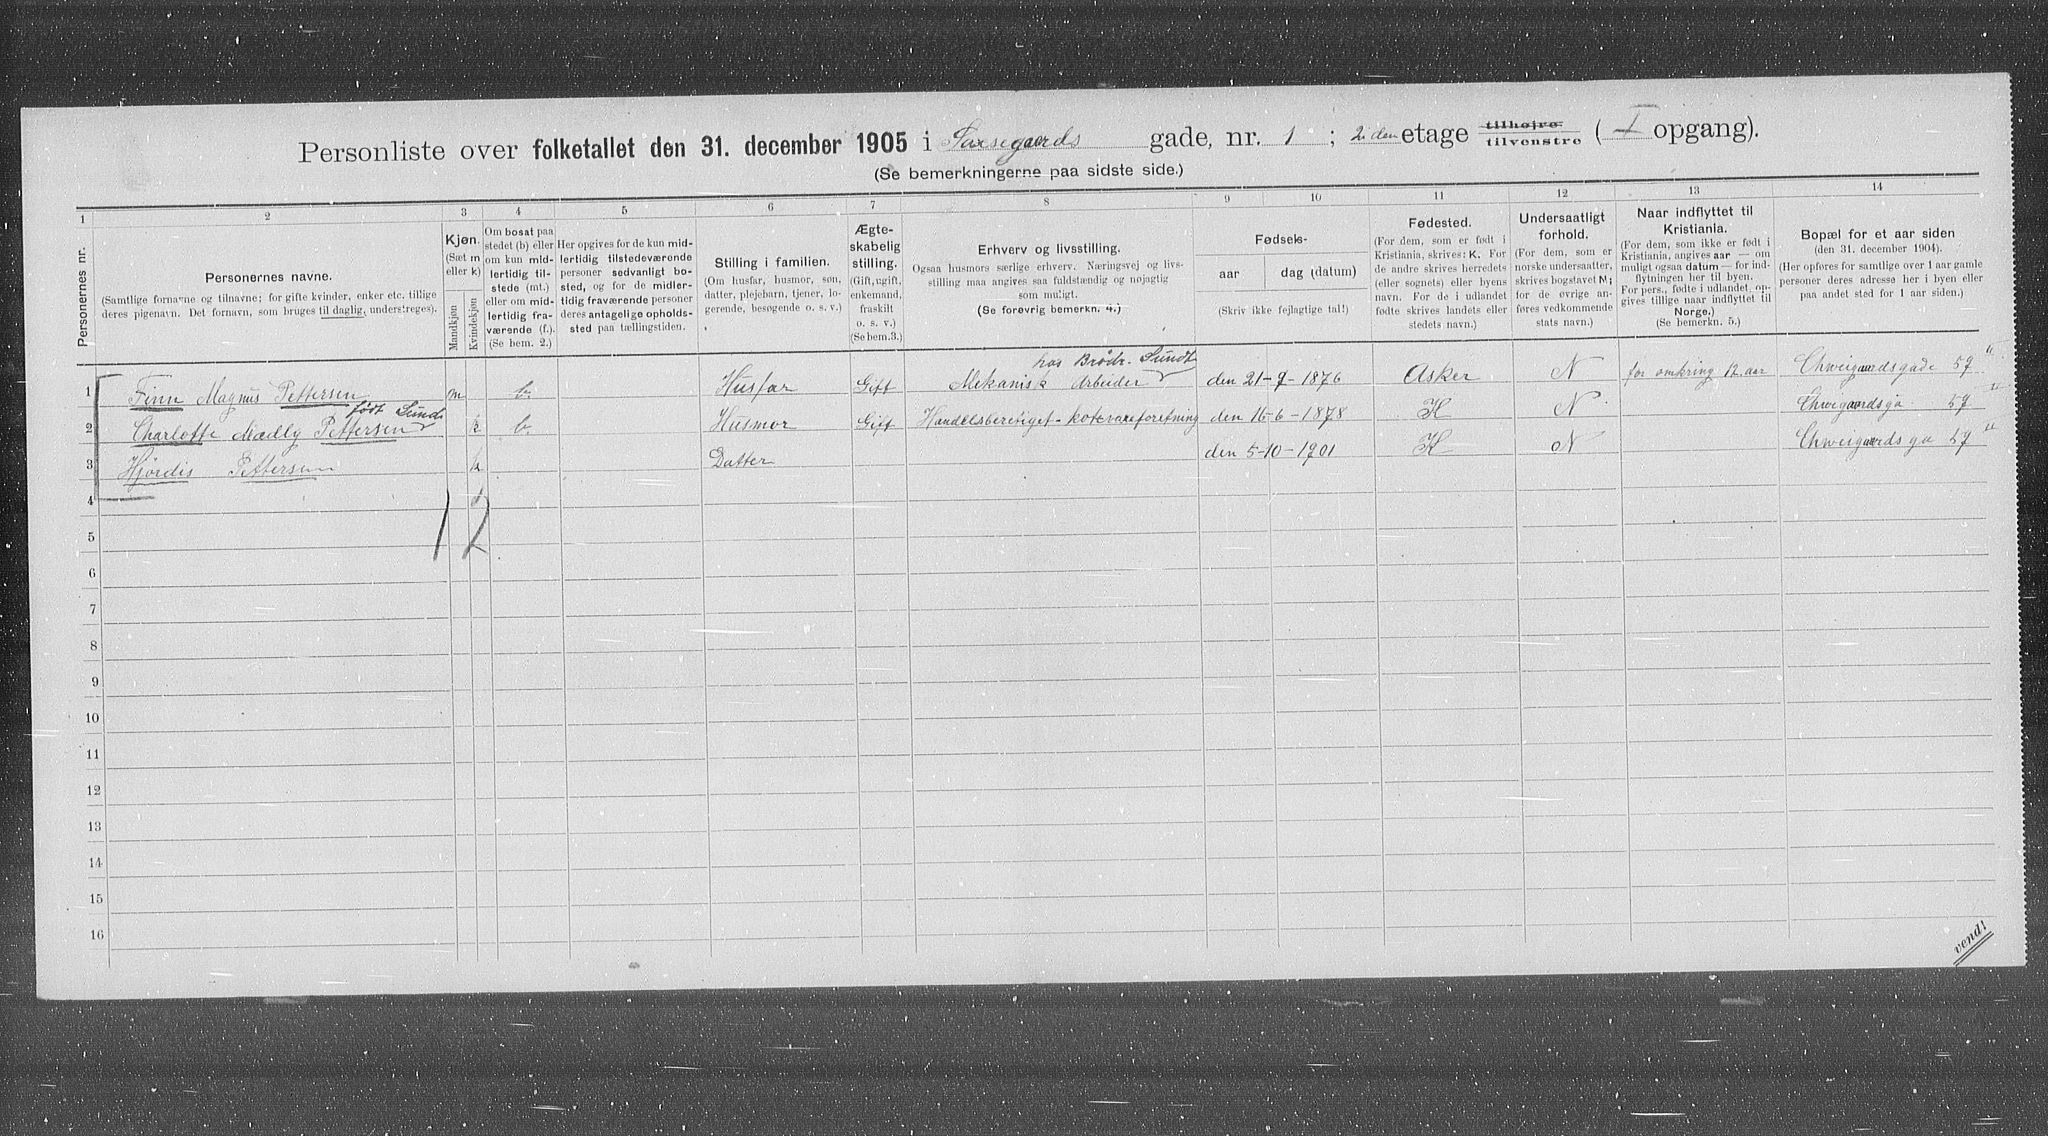 Personliste over folketallet den 31. december 1905 i Saxegaards gade, nr. 1 ; 2den etage tilhøjre tilvenstre ( I opgang).
(Se bemerkningerne paa sidste side.)
1 2 3 4 5 6 7 8 9 10 11 12 13 14
Personernes nr.
Personernes navne.
(Samtlige fornavne og tilnavne; for gifte kvinder, enker etc. tillige
deres pigenavn. Det fornavn, som bruges til daglig, understreges).
Kjøn.
(Sæt m
eller k)
Mandkjøn
Kvindekjøn
Om bosat paa
stedet (b) eller
om kun mid-
lertidig til-
stede (mt.)
eller om mid-
lertidig fra-
værende (f.).
(Se bem. 2.)
Her opgives for de kun mid-
lertidig tilstedeværende
personer sedvanligt bo-
sted, og for de midler-
tidig fraværende personer
deres antagelige opholds-
sted paa tællingstiden.
Stilling i familien.
(Om husfar, husmor, søn,
datter, plejebarn, tjener, lo-
gerende, besøgende o. s. v.)
Ægte-
skabelig
stilling.
(Gift, ugift,
enkemand,
fraskilt
o. s. v.)
(Se bem.3.)
Erhverv og livsstilling.
Ogsaa husmors særlige erhverv. Næringsvej og livs-
stilling maa angives saa fuldstændig og nøjagtig
som muligt.
(Se forøvrig bemerkn. 4.)
Fødsels-
aar
dag (datum)
(Skriv ikke fejlagtige tal!)
Fødested.
(For dem, som er født i
Kristiania, skrives: K. For
de andre skrives herredets
(eller sognets) eller byens
navn. For de i udlandet
fødte skrives landets eller
stedets navn.)
Undersaatligt
forhold.
(For dem, som er
norske undersaatter,
skrives bogstavet N;
for de øvrige an-
føres vedkommende
stats navn.)
Naar indflyttet til
Kristiania.
(For dem, som ikke er født i
Kristiania, angives aar — om
muligt ogsaa datum — for ind-
flytningen her til byen.
For pers., fødte i udlandet, op-
gives tillige naar indflyttet til
Norge.)
(Se bemerkn. 5.)
Bopæl for et aar siden
(den 31. december 1904).
(Her opføres for samtlige over 1 aar gamle
personer deres adresse her i byen eller
paa andet sted for 1 aar siden.)
hos Brødr. Sundt
1 Finn Magnus Pettersen m b. Husfar Gift Mekanisk Arbeider den 21-9-1876 Asker N for omkring 12 aar Chweigaardsgade 57
født Lund
2 Charlotte Mælly Pettersen k b. Husmor Gift Handelsberetiget- den 15-6-1878 K N Chweigaardsga 57
3 Hjørdis Pettersen k Datter den 5-10-1901 K N Chweigaardsga 57
4
1 2
5
6
7
8
9
10
11
12
13
14
15
16
vend!